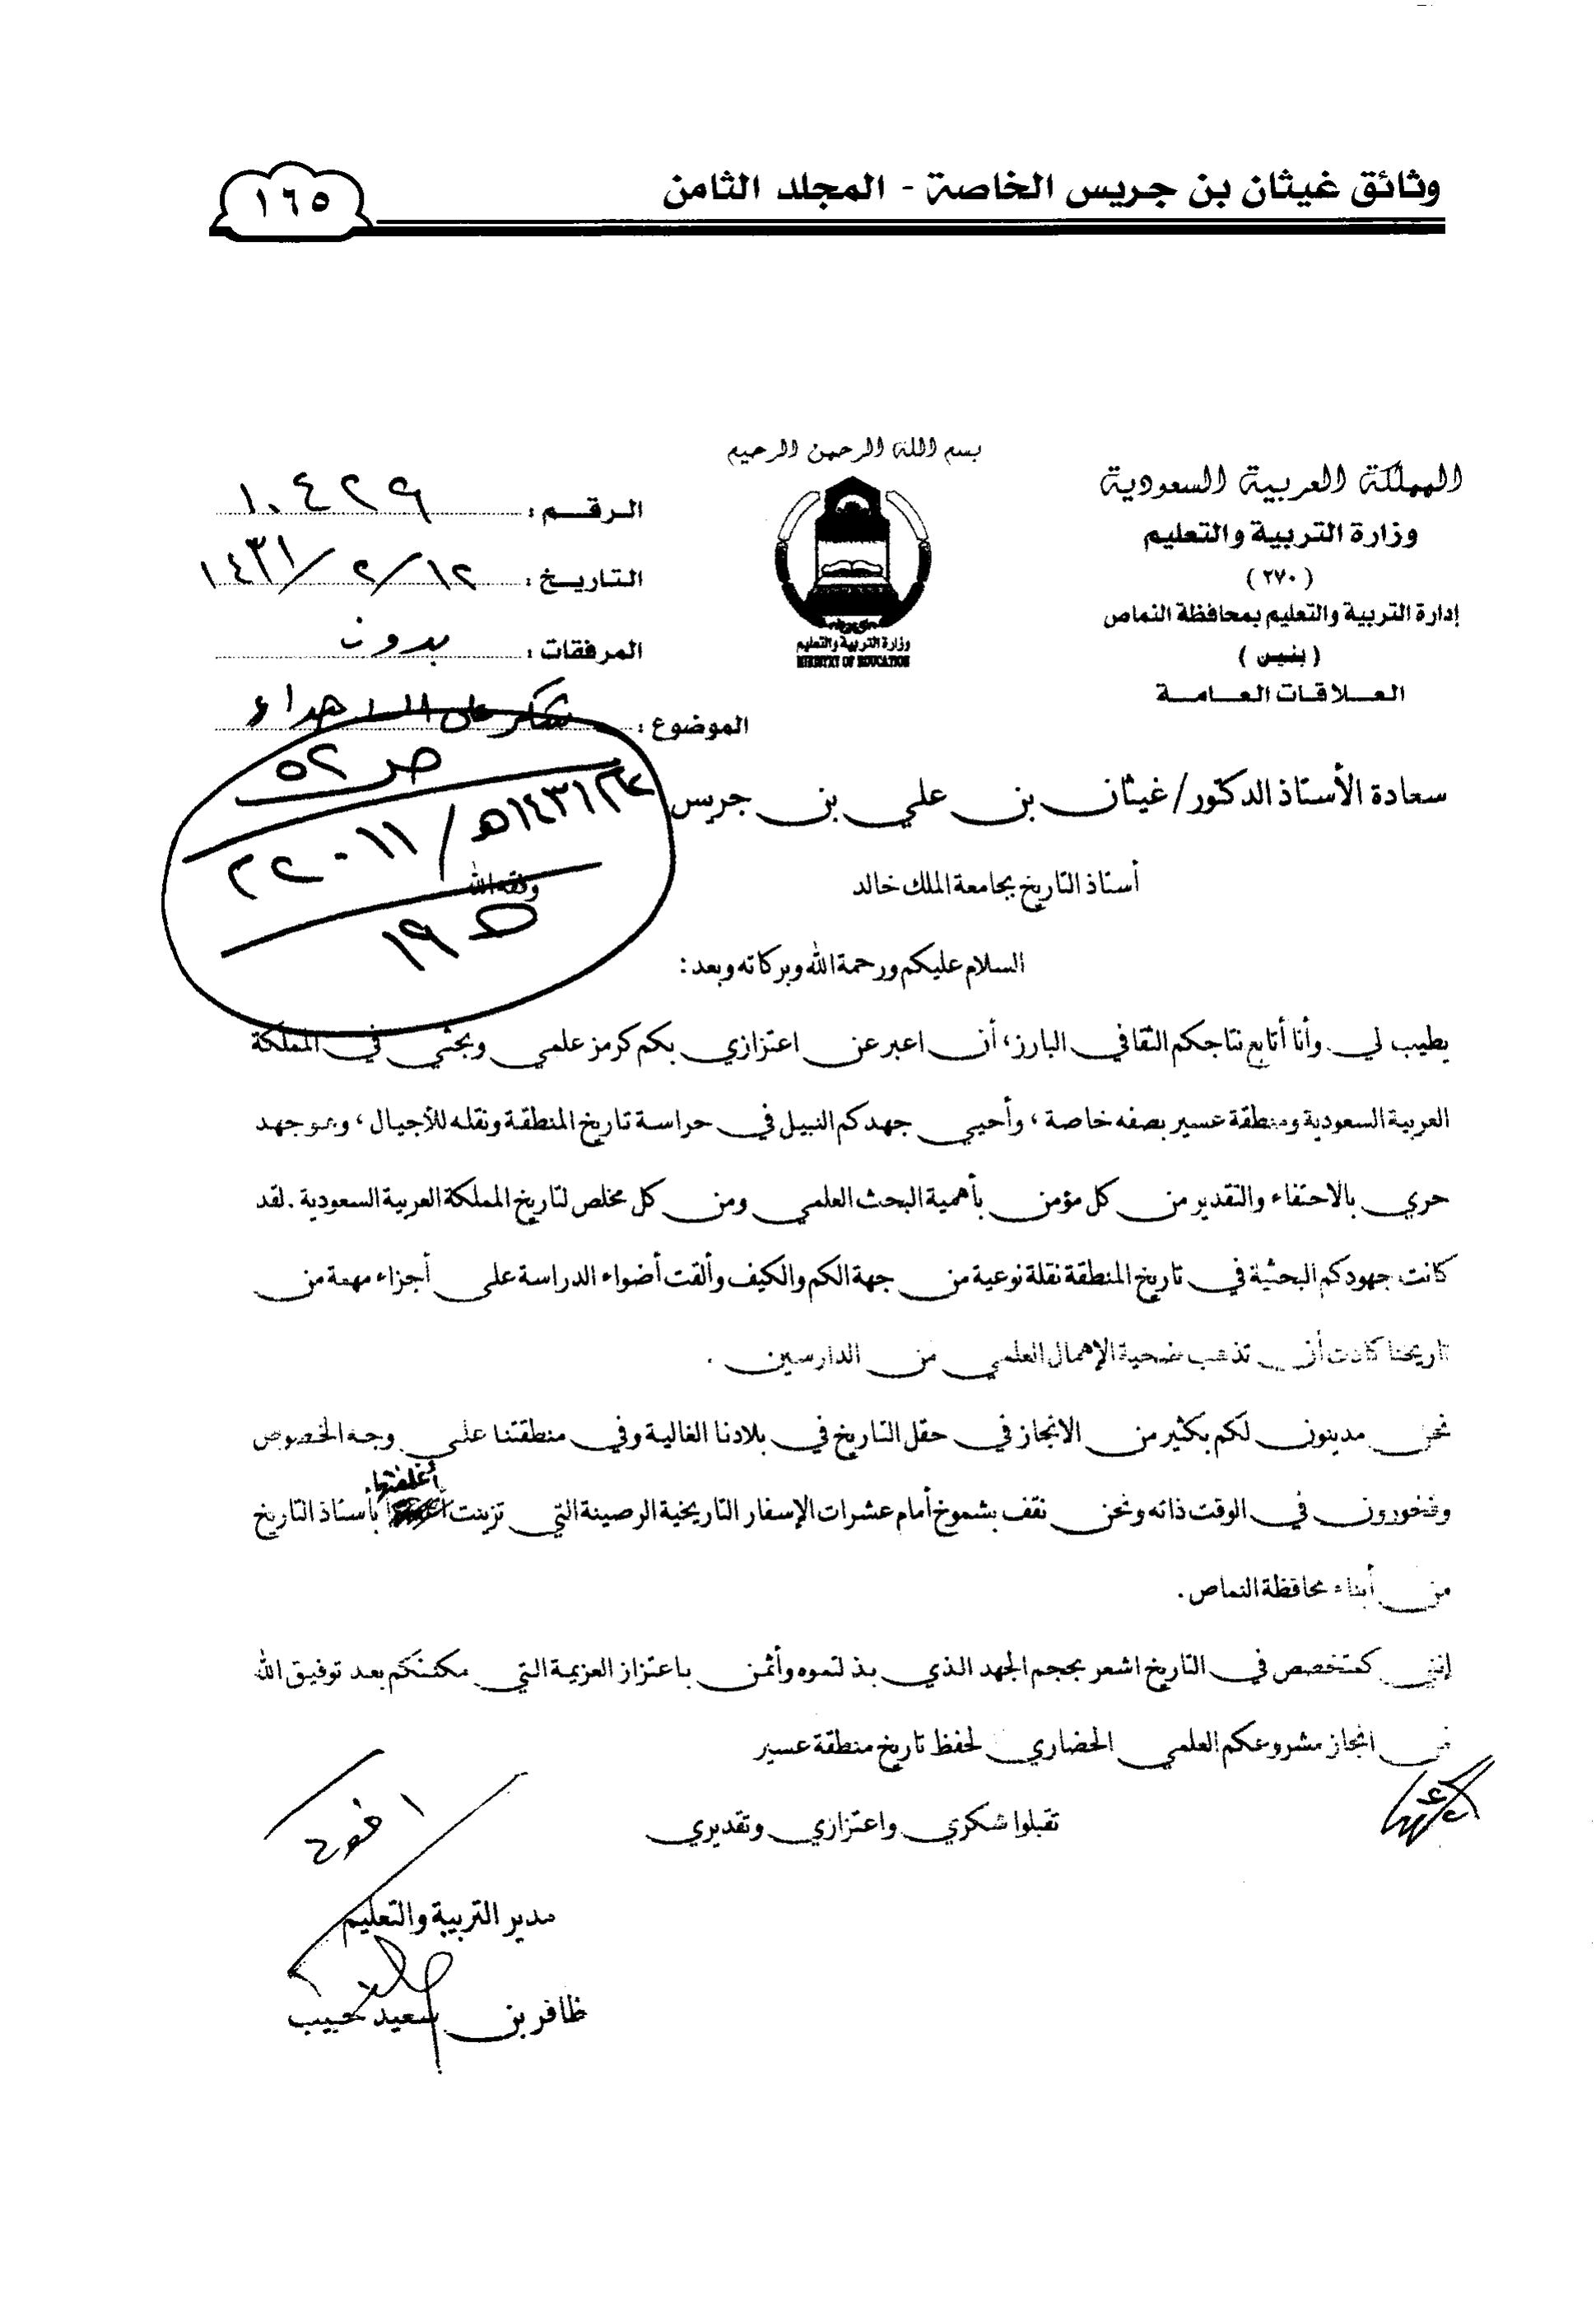 وثائق غيثان بن جريس الخاصة - المجلد الثامن
١٦٥
بسم الله الرحمن الرحيم
المملكة العربية السعودية
وزارة التربية والتعليم
( ٢٧٠ )
إدارة التربية والتعليم بمحافظة النماص
( بنين )
العـلاقـات العـامـة
وزارة التربية والتعليم
MINISTRY OF EDUCATION
الـرقـم : ١٠٤٢٩
التاريـخ : ١٤٣١/٢/١٢
المرفقات : بدون
الموضوع : شكر على الاهداء
ص ٥٢
١٤٣١هـ /
ص ١٩
سعادة الأستاذ الدكتور/ غيثان بن علي بن جريس
وفقه الله
أستاذ التاريخ بجامعة الملك خالد
السلام عليكم ورحمة الله وبركاته وبعد :
يطيب لي وأنا أتابع نتاجكم الثقافي البارز، أن اعبر عن اعتزازي بكم كرمز علمي وبحثي في المملكة
العربية السعودية ومنطقة عسير بصفه خاصة ، وأحيي جهدكم النبيل في حراسة تاريخ المنطقة ونقله للأجيال ، وهو جهد
حري بالاحتفاء والتقدير من كل مؤمن بأهمية البحث العلمي ومن كل مخلص لتاريخ المملكة العربية السعودية . لقد
كانت جهودكم البحثية في تاريخ المنطقة نقلة نوعية من جهة الكم والكيف وألقت أضواء الدراسة على أجزاء مهمة من
تاريخنا كادت أن تذهب ضحية الإهمال العلمي من الدارسين .
نحن مدينون لكم بكثير من الانجاز في حقل التاريخ في بلادنا الغالية وفي منطقتنا على وجه الخصوص
وفخورون في الوقت ذاته ونحن نقف بشموخ أمام عشرات الإسفار التاريخية الرصينة التي تزينت أغلفتها بأستاذ التاريخ
من أبناء محافظة النماص .
إنني كمتخصص في التاريخ اشعر بحجم الجهد الذي بذلتموه وأثمن باعتزاز العزيمة التي مكنتكم بعد توفيق الله
من انجاز مشروعكم العلمي الحضاري لحفظ تاريخ منطقة عسير
تقبلوا شكري واعتزازي وتقديري
اخوكم
مدير التربية والتعليم
ظافر بن سعيد حبيب